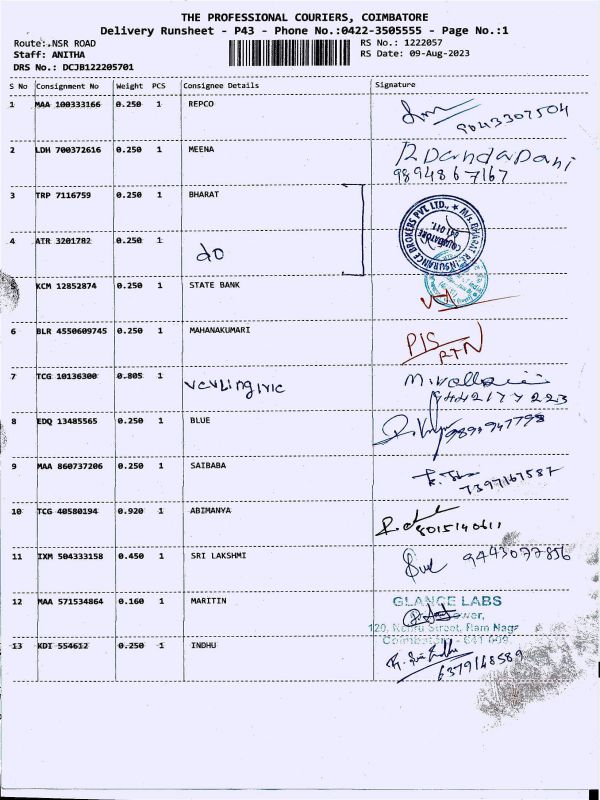 THE PROFESSIONAL COURIERS, COIMBATORE
Delivery Runsheet - P43 - Phone No.:0422-3505555 - Page No.:1
Route:.NSR ROAD RS No.: 1222057
Staff: ANITHA RS Date: 09-Aug-2023
DRS No.: DCJB122205701
S No Consignment No Weight PCS Consignee Details Signature
1 MAA 100333166 0.250 1 REPCO
9043307504
2 LDH 700372616 0.250 1 MEENA R Dandapani
9894867167
3 TRP 7116759 0.250 1 BHARAT
4 ATR 3201782 0.250 1 do
KCM 12852874 0.250 1 STATE BANK
6 BLR 4550609745 0.250 1 MAHANAKUMARI PIS
RTN
7 TCG 10136300 0.805 1
9442177223
8 EDQ 13485565 0.250 1 BLUE
9 MAA 860737206 0.250 1 SAIBABA
7397167587
10 TCG 40580194 0.920 1 ABIMANYA 8015140611
11 IXM 504333158 0.450 1 SRI LAKSHMI 9443077856
12 MAA 571534864 0.160 1 MARITIN GLANCE LABS
Street, Ram Naga
Coimbatore - 641 009
13 KDI 554612 0.250 1 INDHU
6379148589